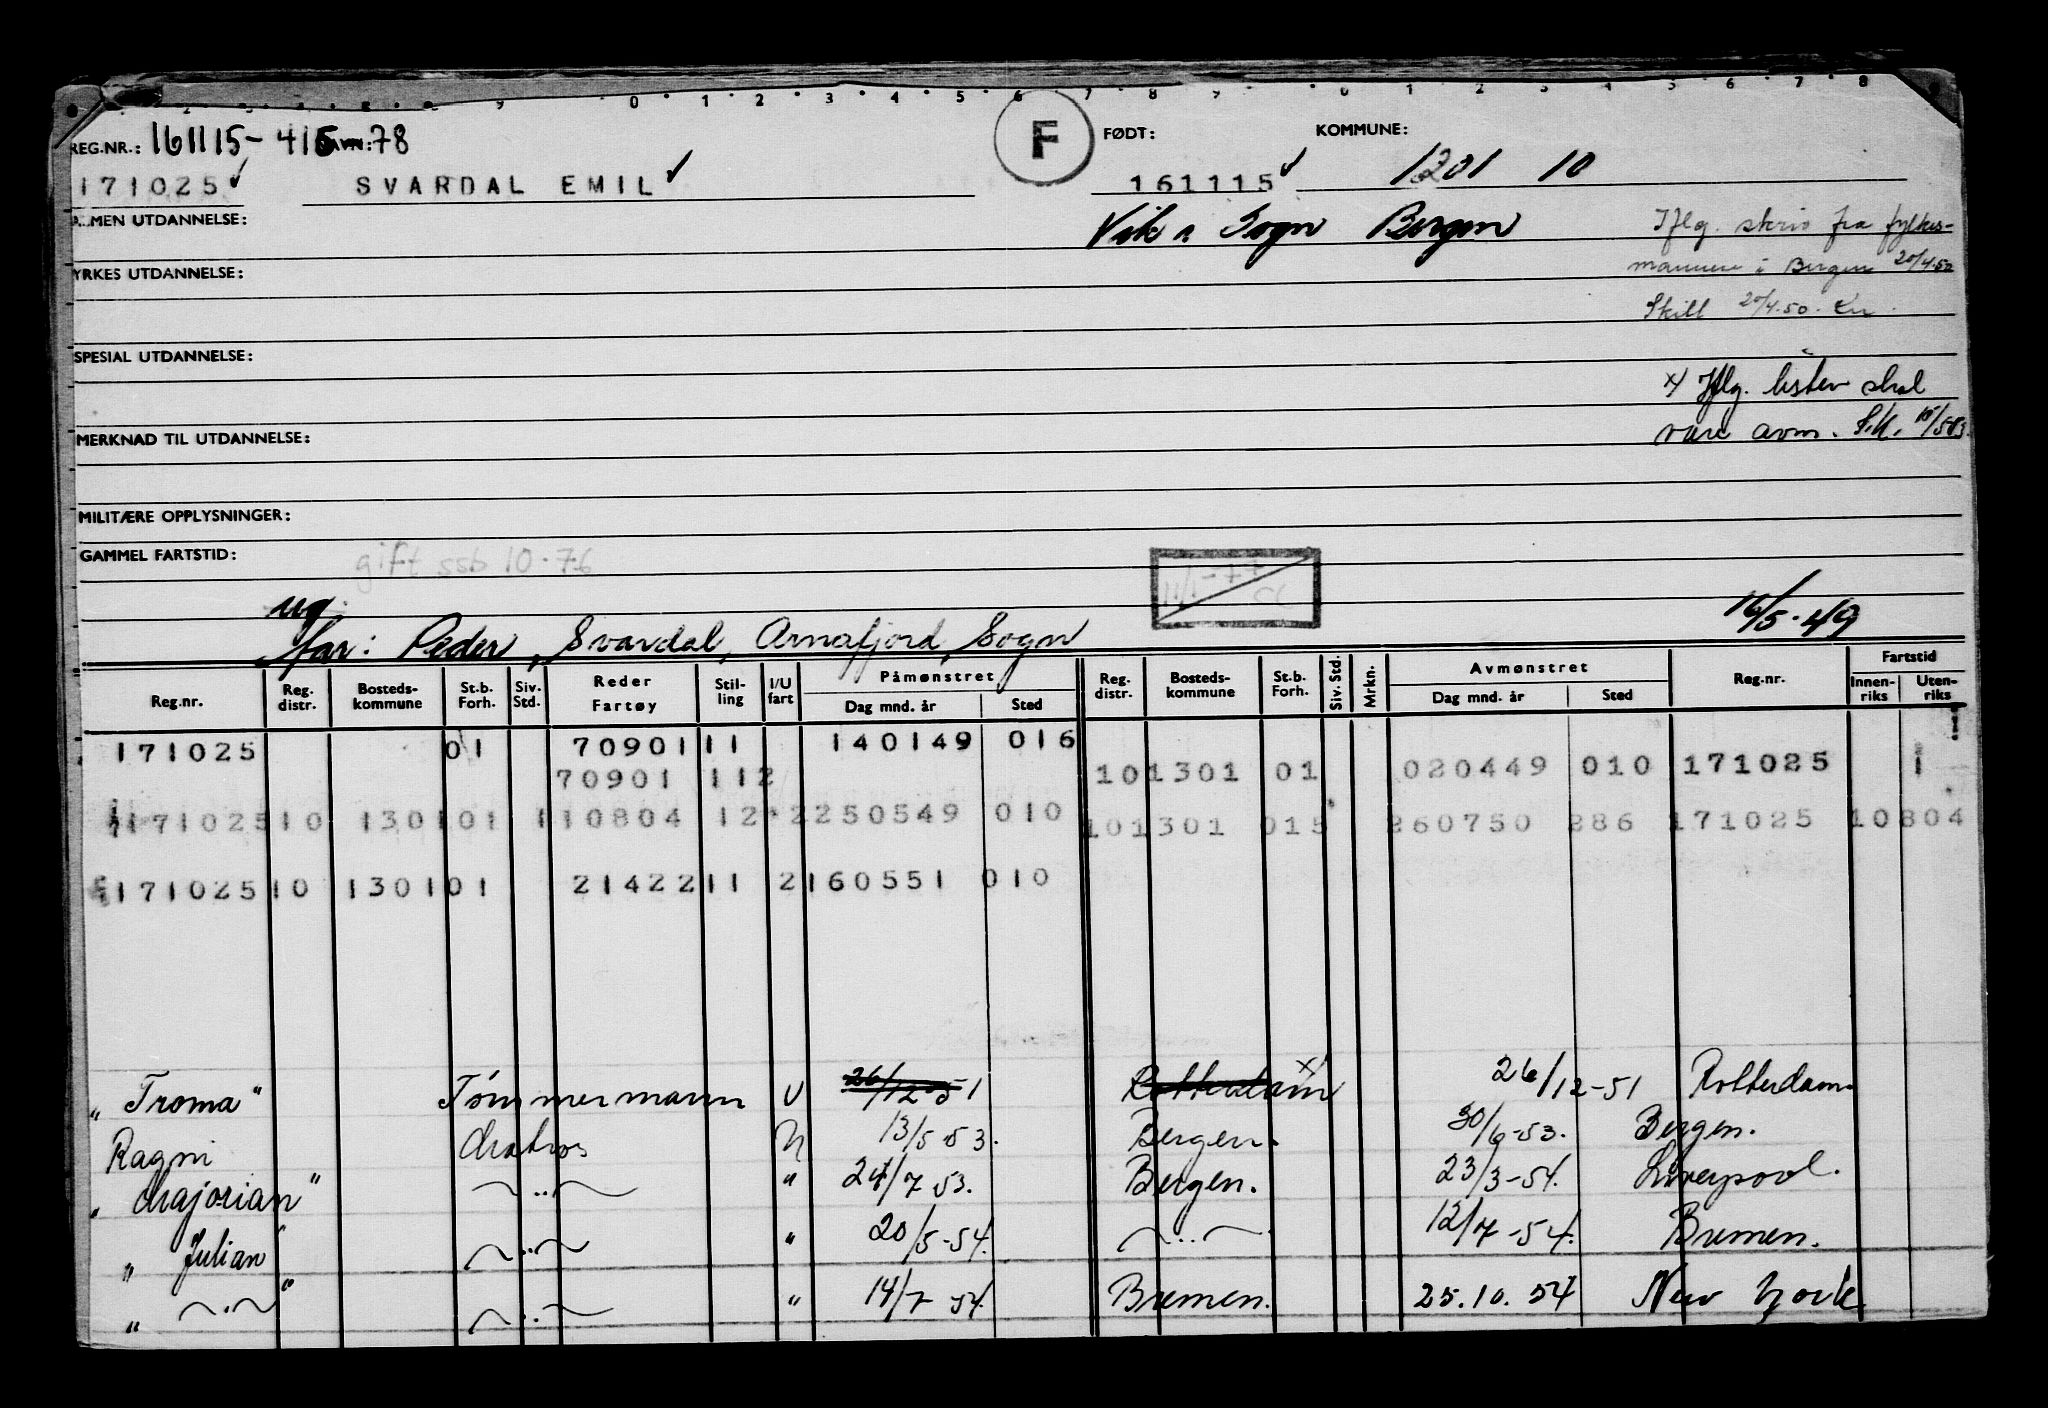 2 3 9 0 1 2 3 4 5 6 7 8 9 0 1 2 3 4 5 6 7 8
REG.NR.: 161115- 415 78
F
FØDT:
KOMMUNE:
171025 SVARDAL EMIL 161115 1201 10
ALMEN UTDANNELSE:
Vik i Sogn Bergen
Iflg. skriv fra fylkes-
YRKES UTDANNELSE:
mannen i Bergen 20/4.50
Skill 20/4.50.
SPESIAL UTDANNELSE:
x) Iflg. listen skal
MERKNAD TIL UTDANNELSE:
være avm. S.K.
MILITÆRE OPPLYSNINGER:
GAMMEL FARTSTID:
gift ssb 10.76
11/1-77
ug.
far: Peder, Svardal, Arnafjord, Sogn
16/5-49
Reg.nr. Reg. distr. Bosteds-kommune St.b. Forh. Siv. Std. Reder Fartøy Stil-ling I/U fart Påmønstret Dag mnd. år Sted Reg. distr. Bosteds-kommune St.b. Forh. Siv. Std. Mrkn. Avmønstret Dag mnd. år Sted Reg.nr. Fartstid Innen-riks Uten-riks
171025 01 70901 11 140149 016
70901 112 10 1301 01 020449 010 171025 1
171025 10 1301 01 1 10804 12 2 250549 010 10 1301 015 260750 286 171025 10804
171025 10 1301 01 21422 11 2 160551 010
"Troma" Tömmermann U 26/12-51 Rotterdam x) 26/12-51 Rotterdam
Ragni Matros 13/5-53. Bergen. 30/6-53. Bergen.
"Majorian" ~..~ " 24/7 53. Bergen. 23/3-54. Liverpool.
"Julian" ~..~ " 20/5-54. ~..~ 12/7-54. Bremen.
"~.~" ~..~ " 14/7 54. Bremen. 25.10.54 New York